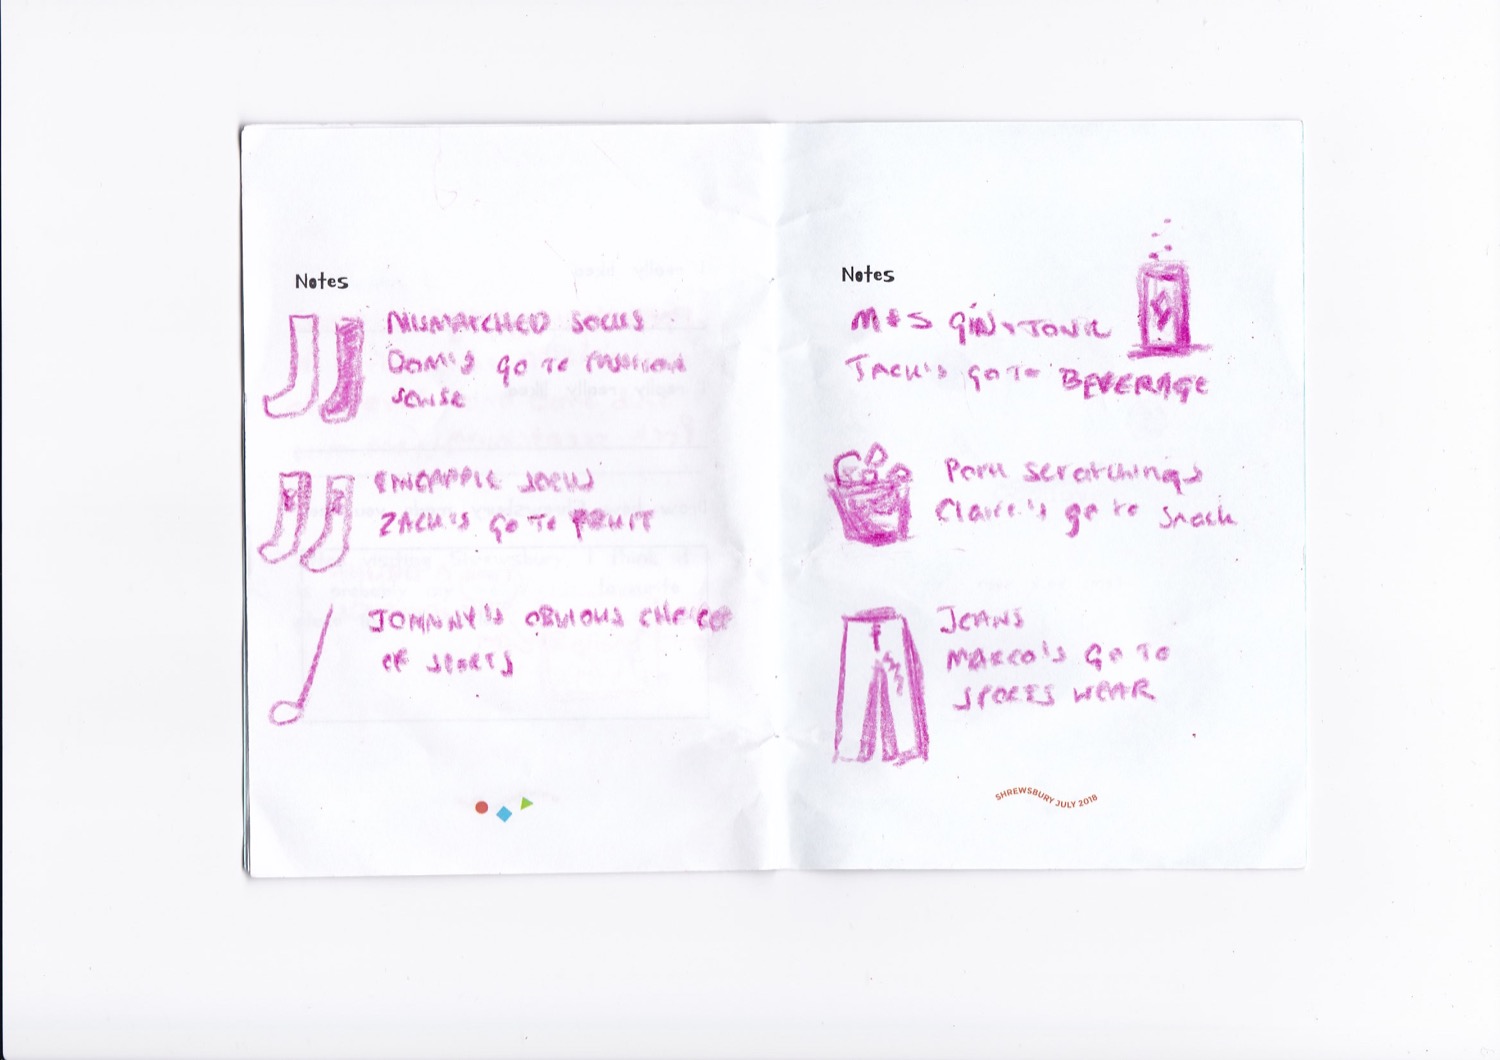 Notes
MISMATCHED SOCKS
DOM'S GO TO FASHION
SENSE
PINEAPPLE SOCKS
ZACK'S GO TO FRUIT
JOHNNY'S OBVIOUS CHOICE
OF SPORTS
Notes
M+S GIN+TONIC
JACK'S GO TO BEVERAGE
Pork scratchings
Claire's go to snack
JEANS
MARCO'S GO TO
SPORTS WEAR
SHREWSBURY JULY 2018